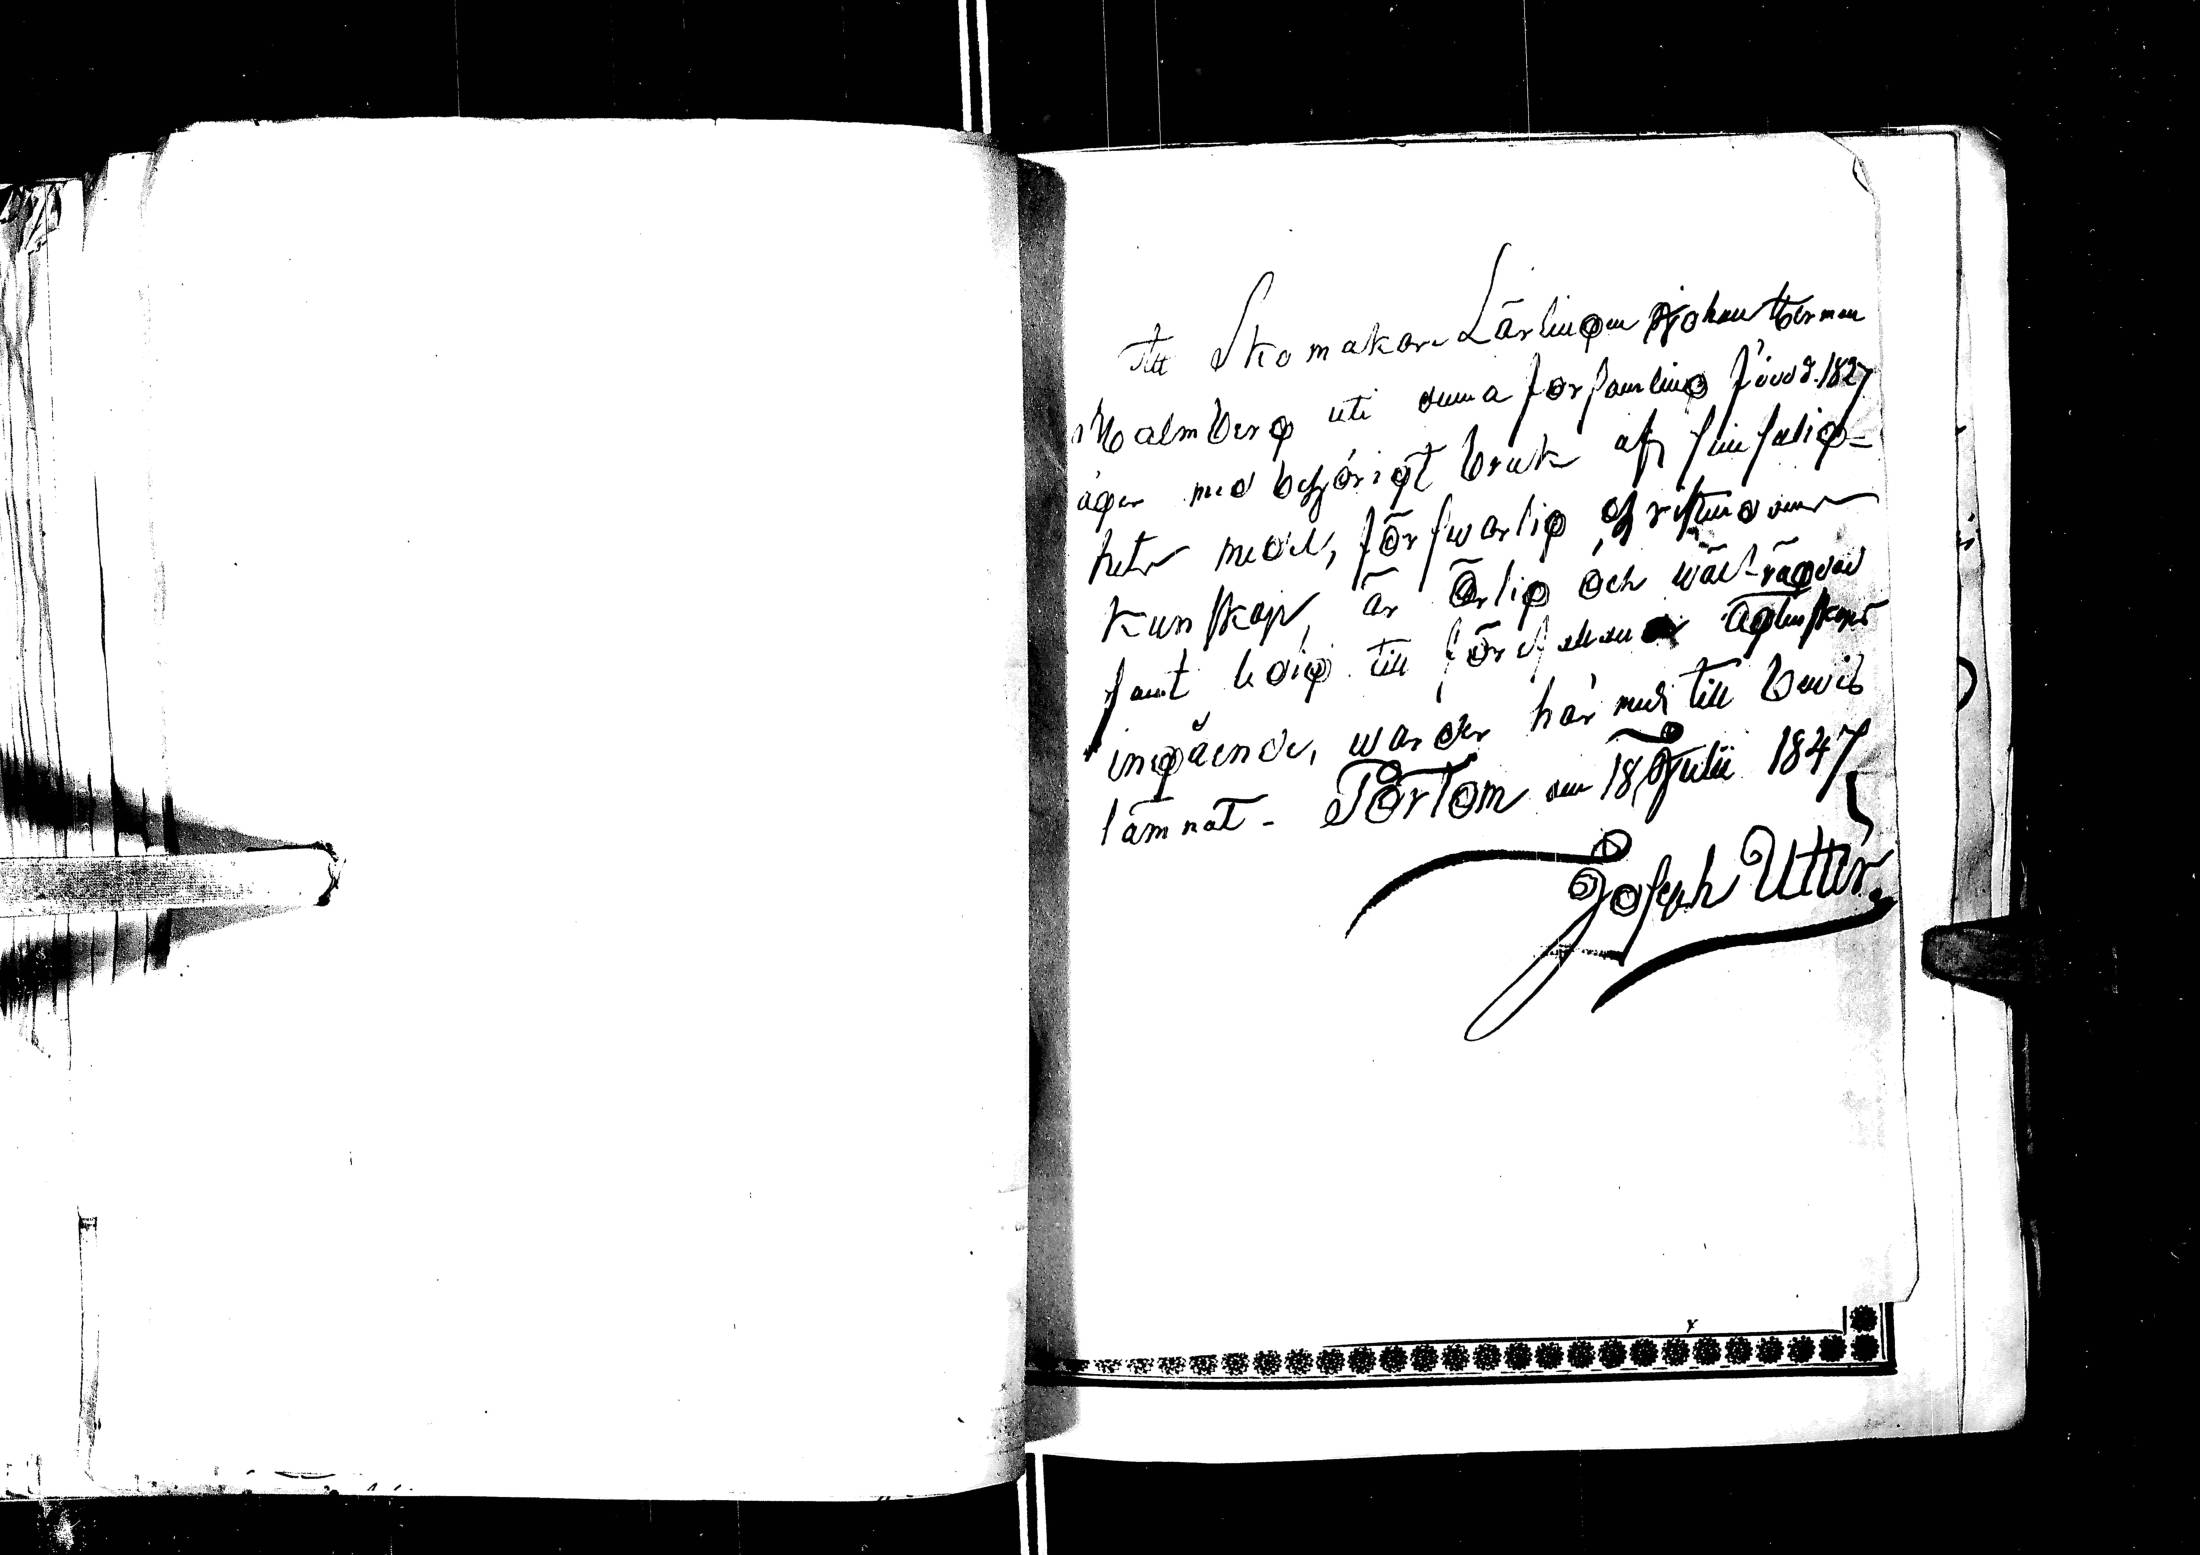 Att Skomakare Lärlingen Johan Herman
Malmberg uti denna församling född 1827
äger med behörigt bruk af sin salig-
hets medel, försvarlig christendoms
kunskap, är ärlig och wäl frägdad
samt ledig till förehafvande ägtenskaps
ingående, warder här med till bevis
lämnat - Pörtom den 18 Julii 1847
Joseph Utter.